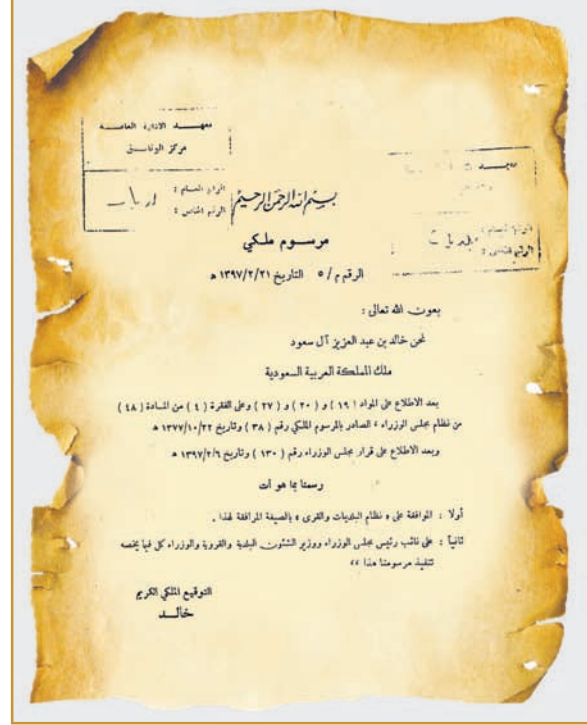 معهــد الادارة العامــة
مركز الوثائــق
الرقم العــام :
الرقم الخاص :
الرقم العــام :
الرقم الخاص :
بسم الله الرحمن الرحيم
مرســوم ملــكي
الرقم م / ٥ التاريخ ١٣٩٧/٢/٢١ هـ
بعون الله تعالى :
نحن خالد بن عبد العزيز آل سعود
ملك المملكة العربية السعودية
بعد الاطلاع على المواد ( ١٩ ) و ( ٢٠ ) و ( ٢٧ ) وعلى الفقرة ( ٤ ) من المــادة ( ٤٨ )
من نظام مجلس الوزراء ، الصادر بالمرسوم الملكي رقم ( ٣٨ ) وتاريخ ١٣٧٧/١٠/٢٢ هـ
وبعد الاطلاع على قرار مجلس الوزراء رقم ( ١٣٠ ) وتاريخ ١٣٩٧/٢/٦ هـ
رسمنا بما هو آت
أولا : الموافقة على « نظام البلديات والقرى » بالصيغة المرافقة لهذا .
ثانياً : على نائب رئيس مجلس الوزراء ووزير الشئون البلدية والقروية والوزراء كل فيما يخصه
تنفيذ مرسومنا هذا ،،
التوقيع الملكي الكريم
خالــــد